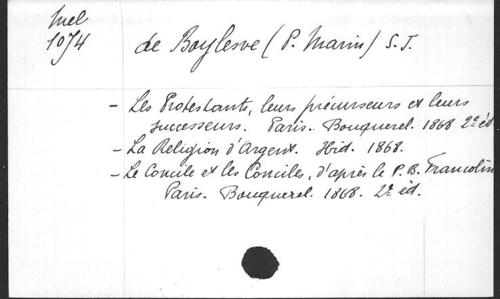 Mel
1074
de Boylesve (P. Marin) S.J.
- Les Protestants, leurs précurseurs et leurs
successeurs. Paris. Bouquerel. 1868 2e éd
- La Religion d'Argent. Ibid. 1868.
- Le Concile et les Conciles, d'après le P.B. Francolin
Paris. Bouquerel. 1868. 2e éd.